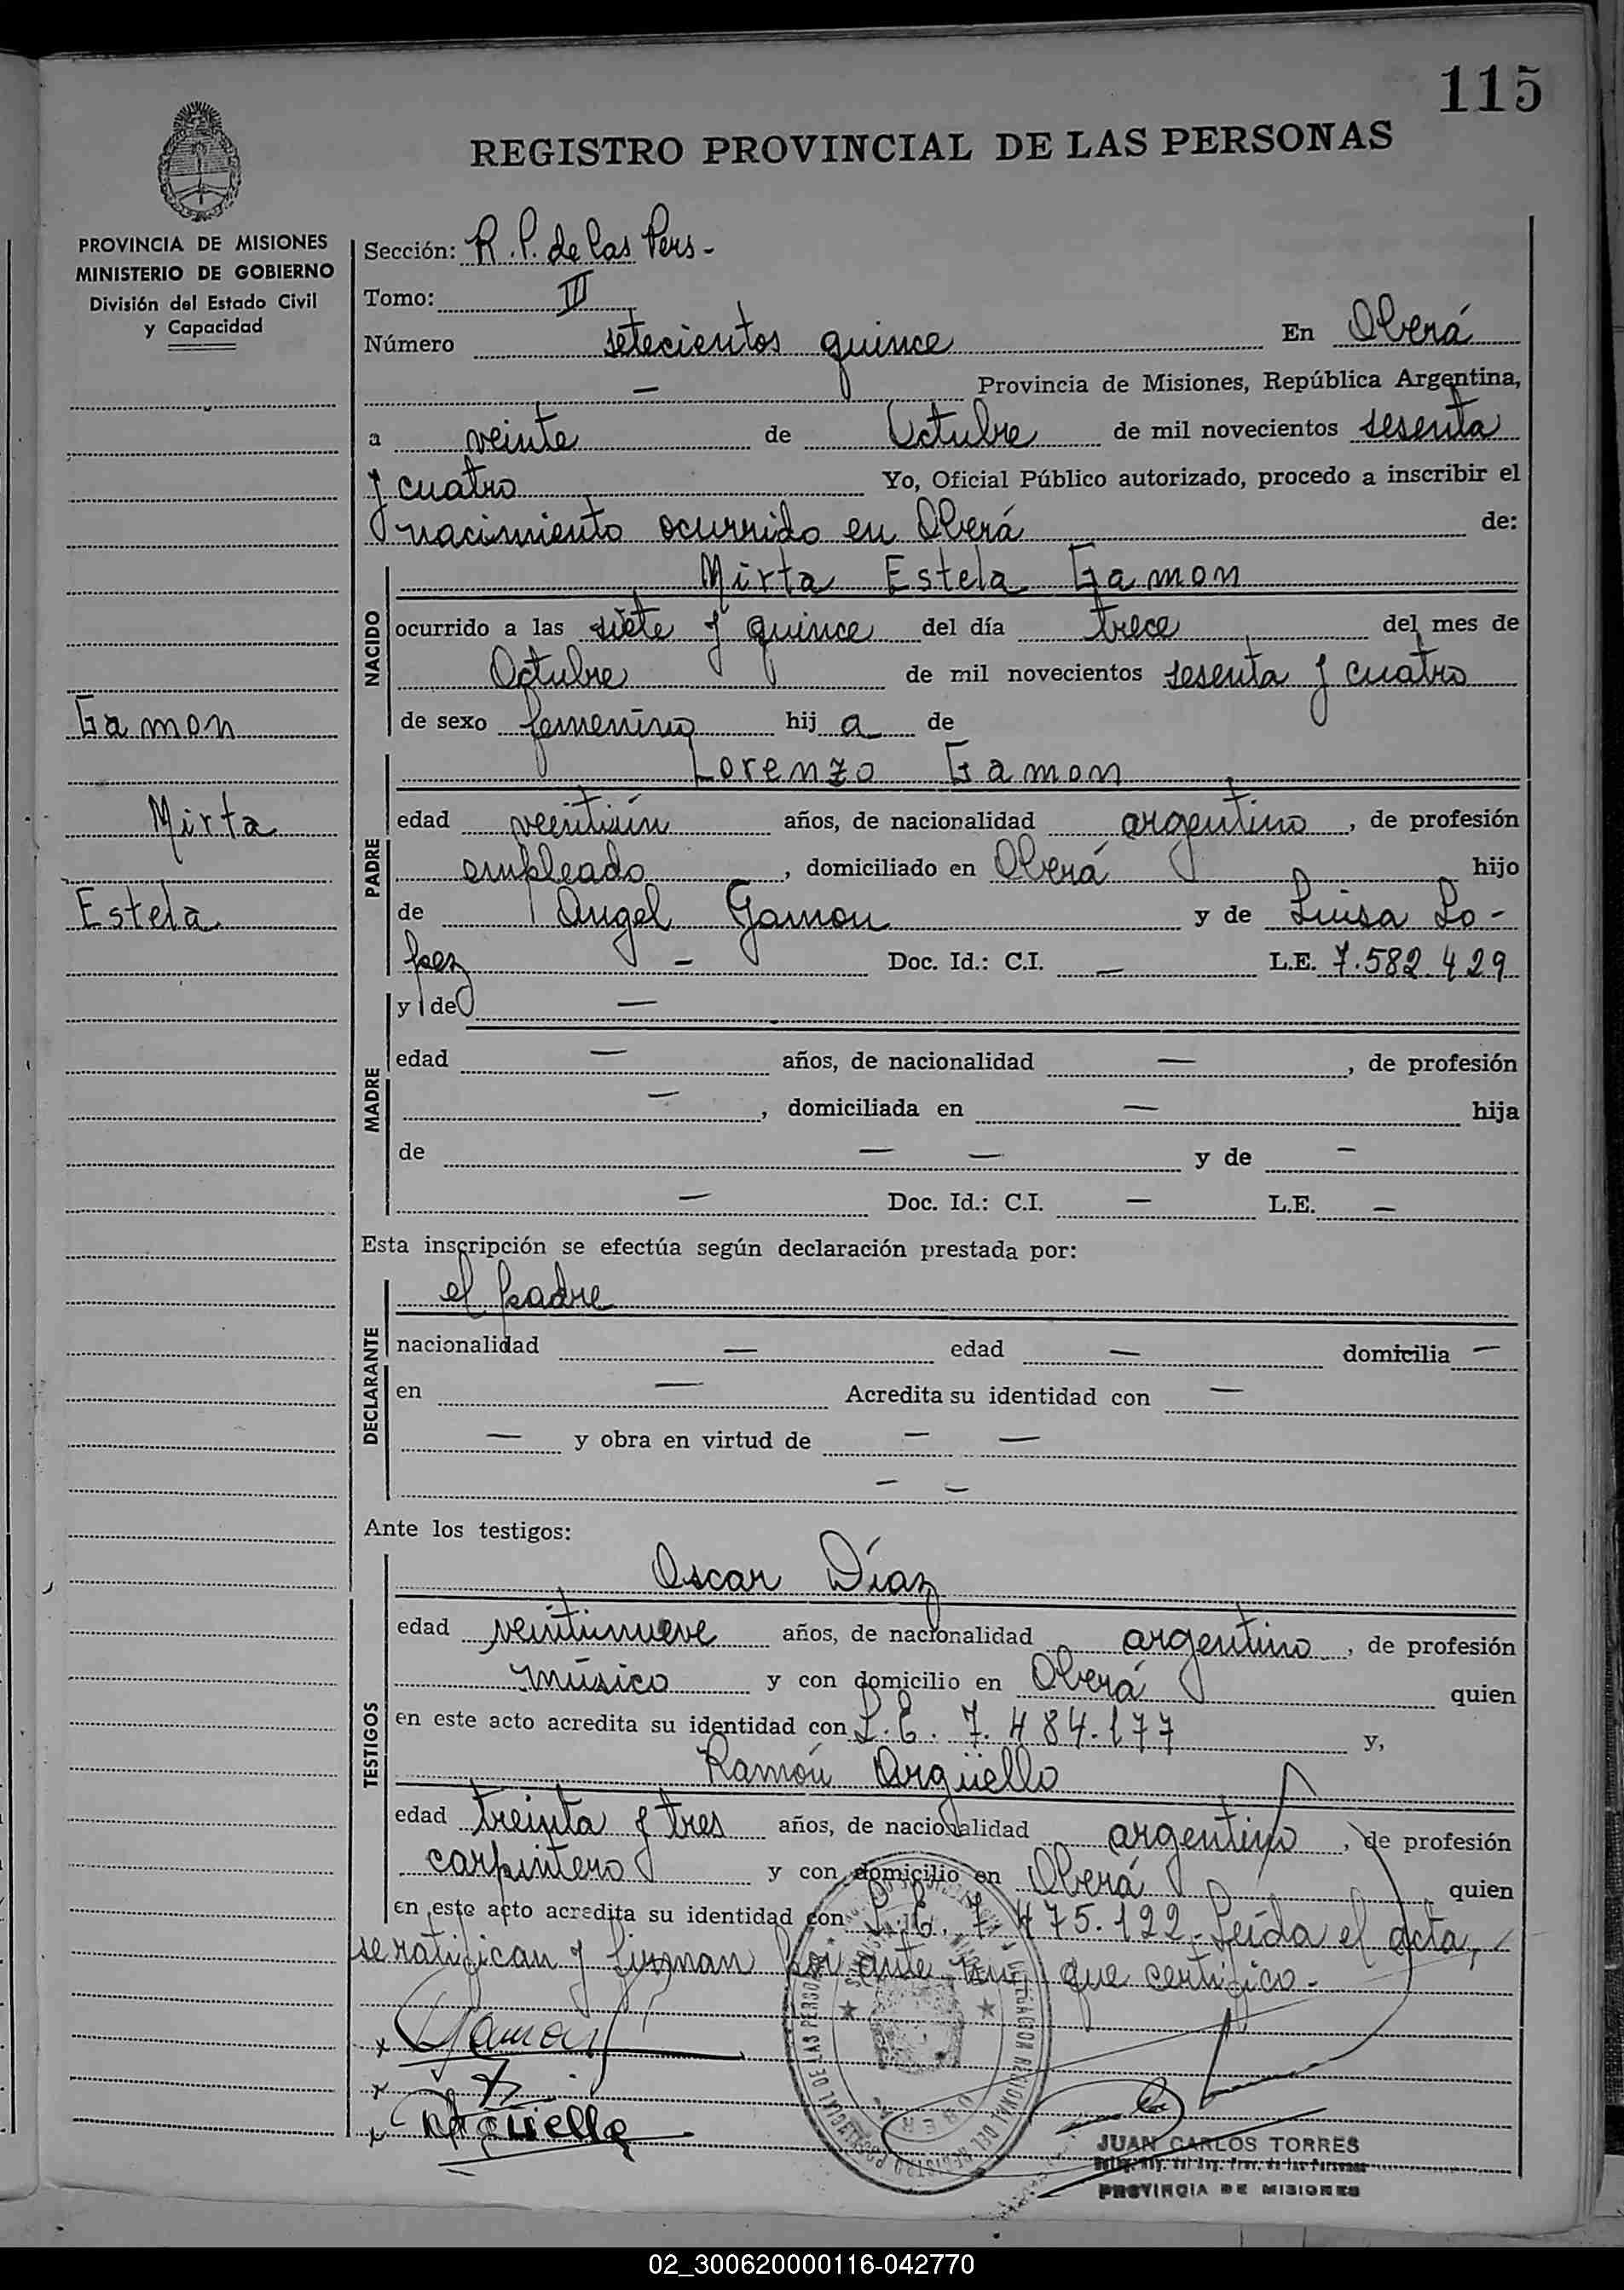 115
REGISTRO PROVINCIAL DE LAS PERSONAS
PROVINCIA DE MISIONES
MINISTERIO DE GOBIERNO
División del Estado Civil
y Capacidad
Gamon
Mirta
Estela
Sección: R. P. de las Pers -
Tomo: III
Número setecientos quince En Oberá
— Provincia de Misiones, República Argentina,
a veinte de Octubre de mil novecientos sesenta
y cuatro Yo, Oficial Público autorizado, procedo a inscribir el
nacimiento ocurrido en Oberá de:
NACIDO
Mirta Estela Gamon
ocurrido a las siete y quince del día trece del mes de
Octubre de mil novecientos sesenta y cuatro
de sexo femenino hij a de
PADRE
Lorenzo Gamon
edad veintiún años, de nacionalidad argentino, de profesión
empleado, domiciliado en Oberá hijo
de Angel Gamon y de Luisa Lo-
pez — Doc. Id.: C.I. — L.E. 7.582.429
MADRE
y de —
edad — años, de nacionalidad —, de profesión
—, domiciliada en — hija
de — — y de —
— Doc. Id.: C.I. — L.E. —
Esta inscripción se efectúa según declaración prestada por:
DECLARANTE
el padre
nacionalidad — edad — domicilia —
en — Acredita su identidad con —
— y obra en virtud de — —
— —
Ante los testigos:
TESTIGOS
Oscar Díaz
edad veintinueve años, de nacionalidad argentino, de profesión
músico y con domicilio en Oberá quien
en este acto acredita su identidad con L.E. 7.484.177 y,
Ramón Argüello
edad treinta y tres años, de nacionalidad argentino, de profesión
carpintero y con domicilio en Oberá quien
en este acto acredita su identidad con L.E. 7.475.122.- Leída el acta,
se ratifican y firman por ante mí, que certifico.-
x Gamon
x
x Argüello
JUAN CARLOS TORRES
PROVINCIA DE MISIONES
02_300620000116-042770